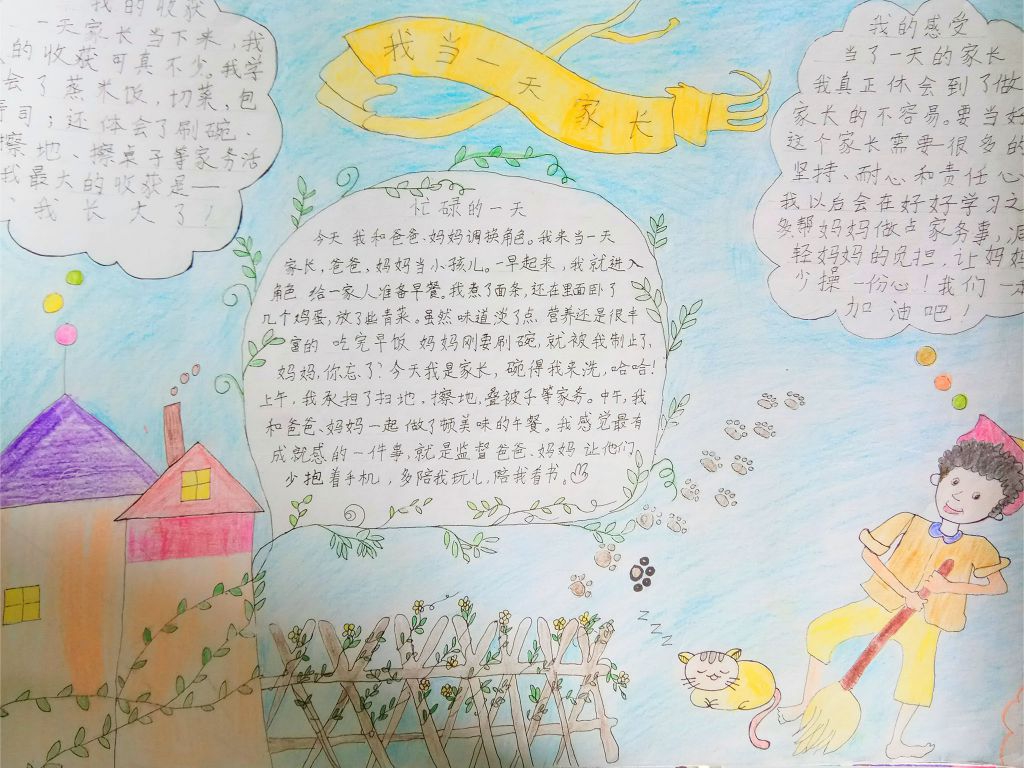 我当一天家长
我的收获
一天家长当下来,我
的收获可真不少。我学
会了蒸米饭,切菜,包
寿司;还体会了刷碗、
擦地、擦桌子等家务活
我最大的收获是——
、我长大了!
忙碌的一天
今天我和爸爸、妈妈调换角色。我来当一天
家长,爸爸,妈妈当小孩儿。一早起来,我就进入
角色 给一家人准备早餐。我煮了面条,还在里面卧了
几个鸡蛋,放了些青菜。虽然味道淡了点 营养还是很丰
富的 吃完早饭 妈妈刚要刷碗,就被我制止了,
妈妈,你忘了?今天我是家长,碗得我来洗,哈哈!
上午,我承担了扫地,擦地,叠被子等家务。中午,我
和爸爸、妈妈一起做了顿美味的午餐。我感觉最有
成就感的一件事,就是监督爸爸、妈妈 让他们
少抱着手机,多陪我玩儿,陪我看书。
我的感受
当了一天的家长
我真正体会到了做
家长的不容易。要当好
这个家长需要很多的
坚持、耐心和责任心
我以后会在好好学习之
多帮妈妈做点家务事,减
轻妈妈的负担,让妈妈
少操一份心!我们一
加油吧!
z z z z